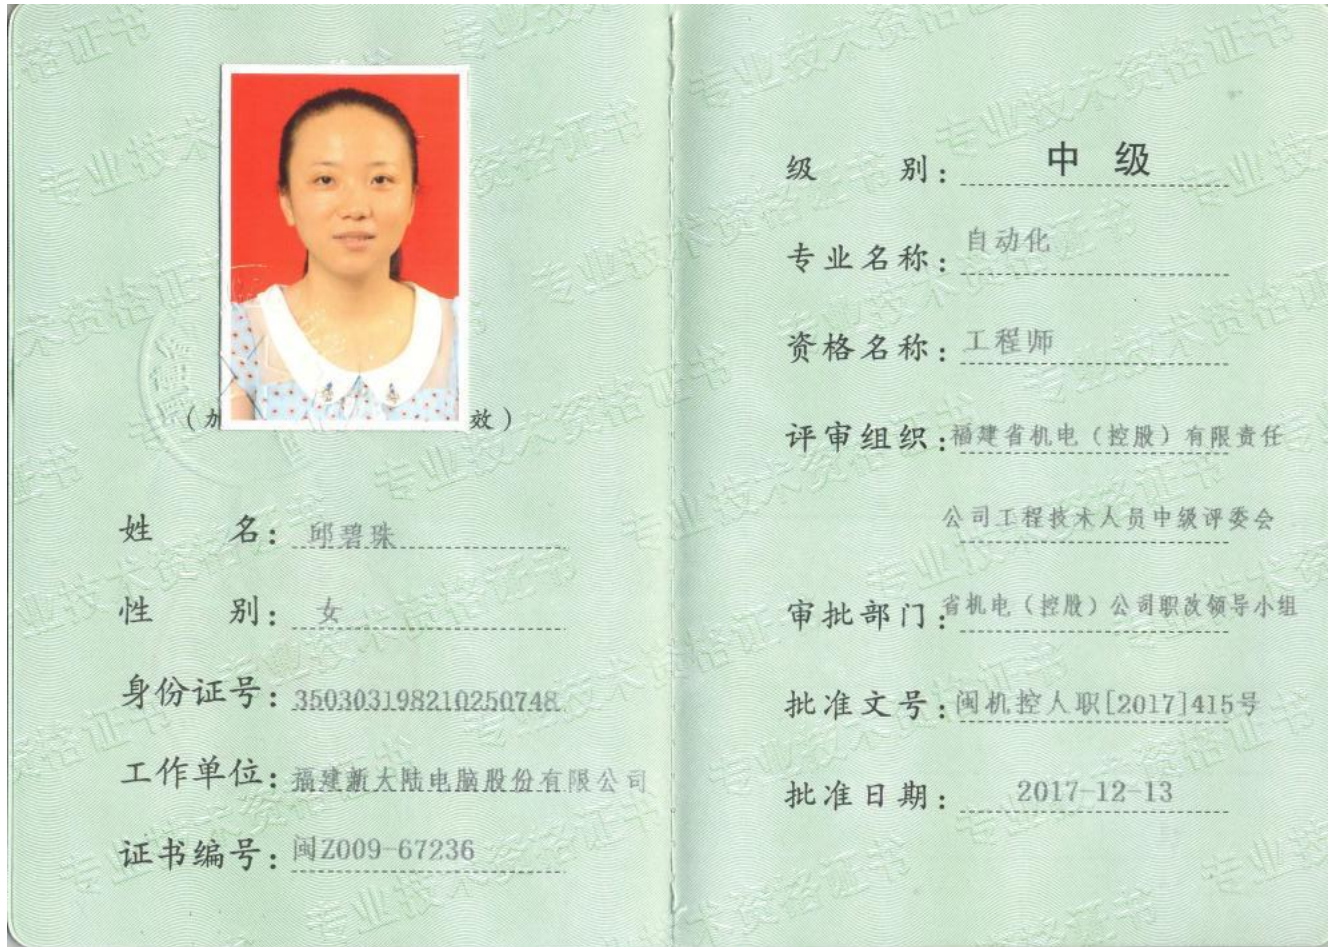 (加
效)
姓 名: 邱碧珠
性 别: 女
身份证号: 350303198210250748
工作单位: 福建新大陆电脑股份有限公司
证书编号: 闽Z009-67236
级 别: 中 级
专业名称: 自动化
资格名称: 工程师
评审组织: 福建省机电(控股)有限责任
公司工程技术人员中级评委会
审批部门: 省机电(控股)公司职改领导小组
批准文号: 闽机控人职[2017]415号
批准日期: 2017-12-13
专业技术资格证书